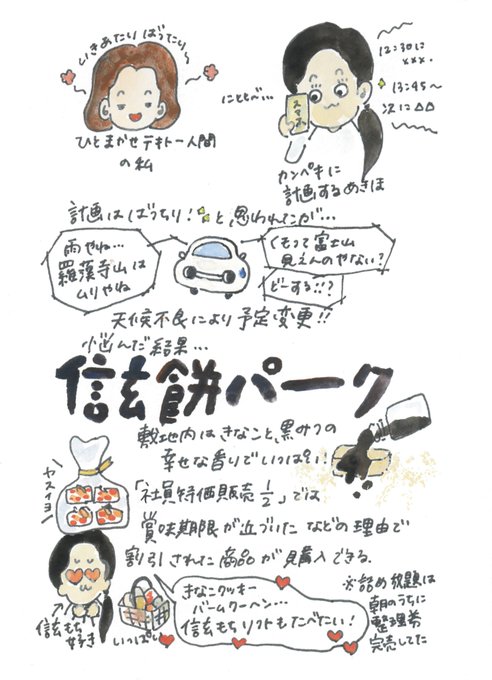 いきあたりばったり
ひとまかせテキトー人間
の私
12:30に
×××.
13:45〜
次に△△
にとどで…
スマホ
カンペキに
計画するめきほ
計画はばっちり!と思われたが…
雨やね…
羅漢寺山は
ムリやね
くもって富士山
見えんのやない?
どーする!!?
天候不良により予定変更!!
悩んだ結果…
信玄餅パーク
敷地内はきなこと、黒みつの
幸せな香りでいっぱい!
ヤスイヨ〜
「社員特価販売1/2」では
賞味期限が近づいたなどの理由で
割引された商品が購入できる.
信玄もち
好き
いっぱい
きなこクッキー
バームクーヘン…
信玄もちソフトもたべたい!
※詰め放題は
朝のうちに
整理券
完売してた